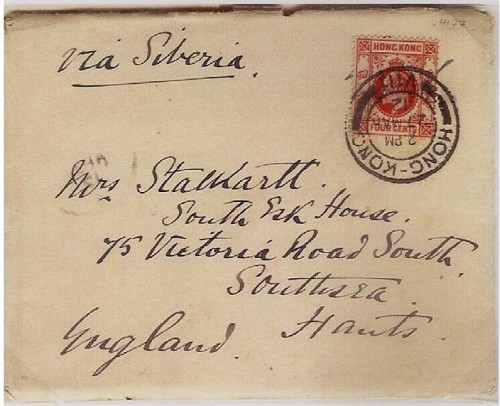 via Siberia.
HONG KONG
FOUR CENTS
HONG-KONG
2 PM
Mrs Stalkartt.
South Esk House.
75 Victoria Road South
Southsea
Hants.
England.